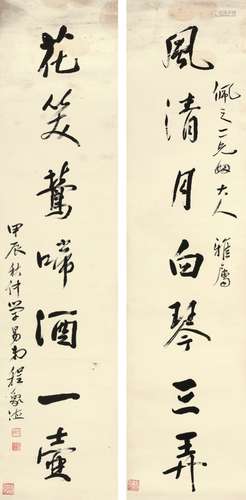 風清月白琴三弄
佩之一兄姻大人 雅屬
花笑鶯啼酒一壺
甲辰秋仲 學易